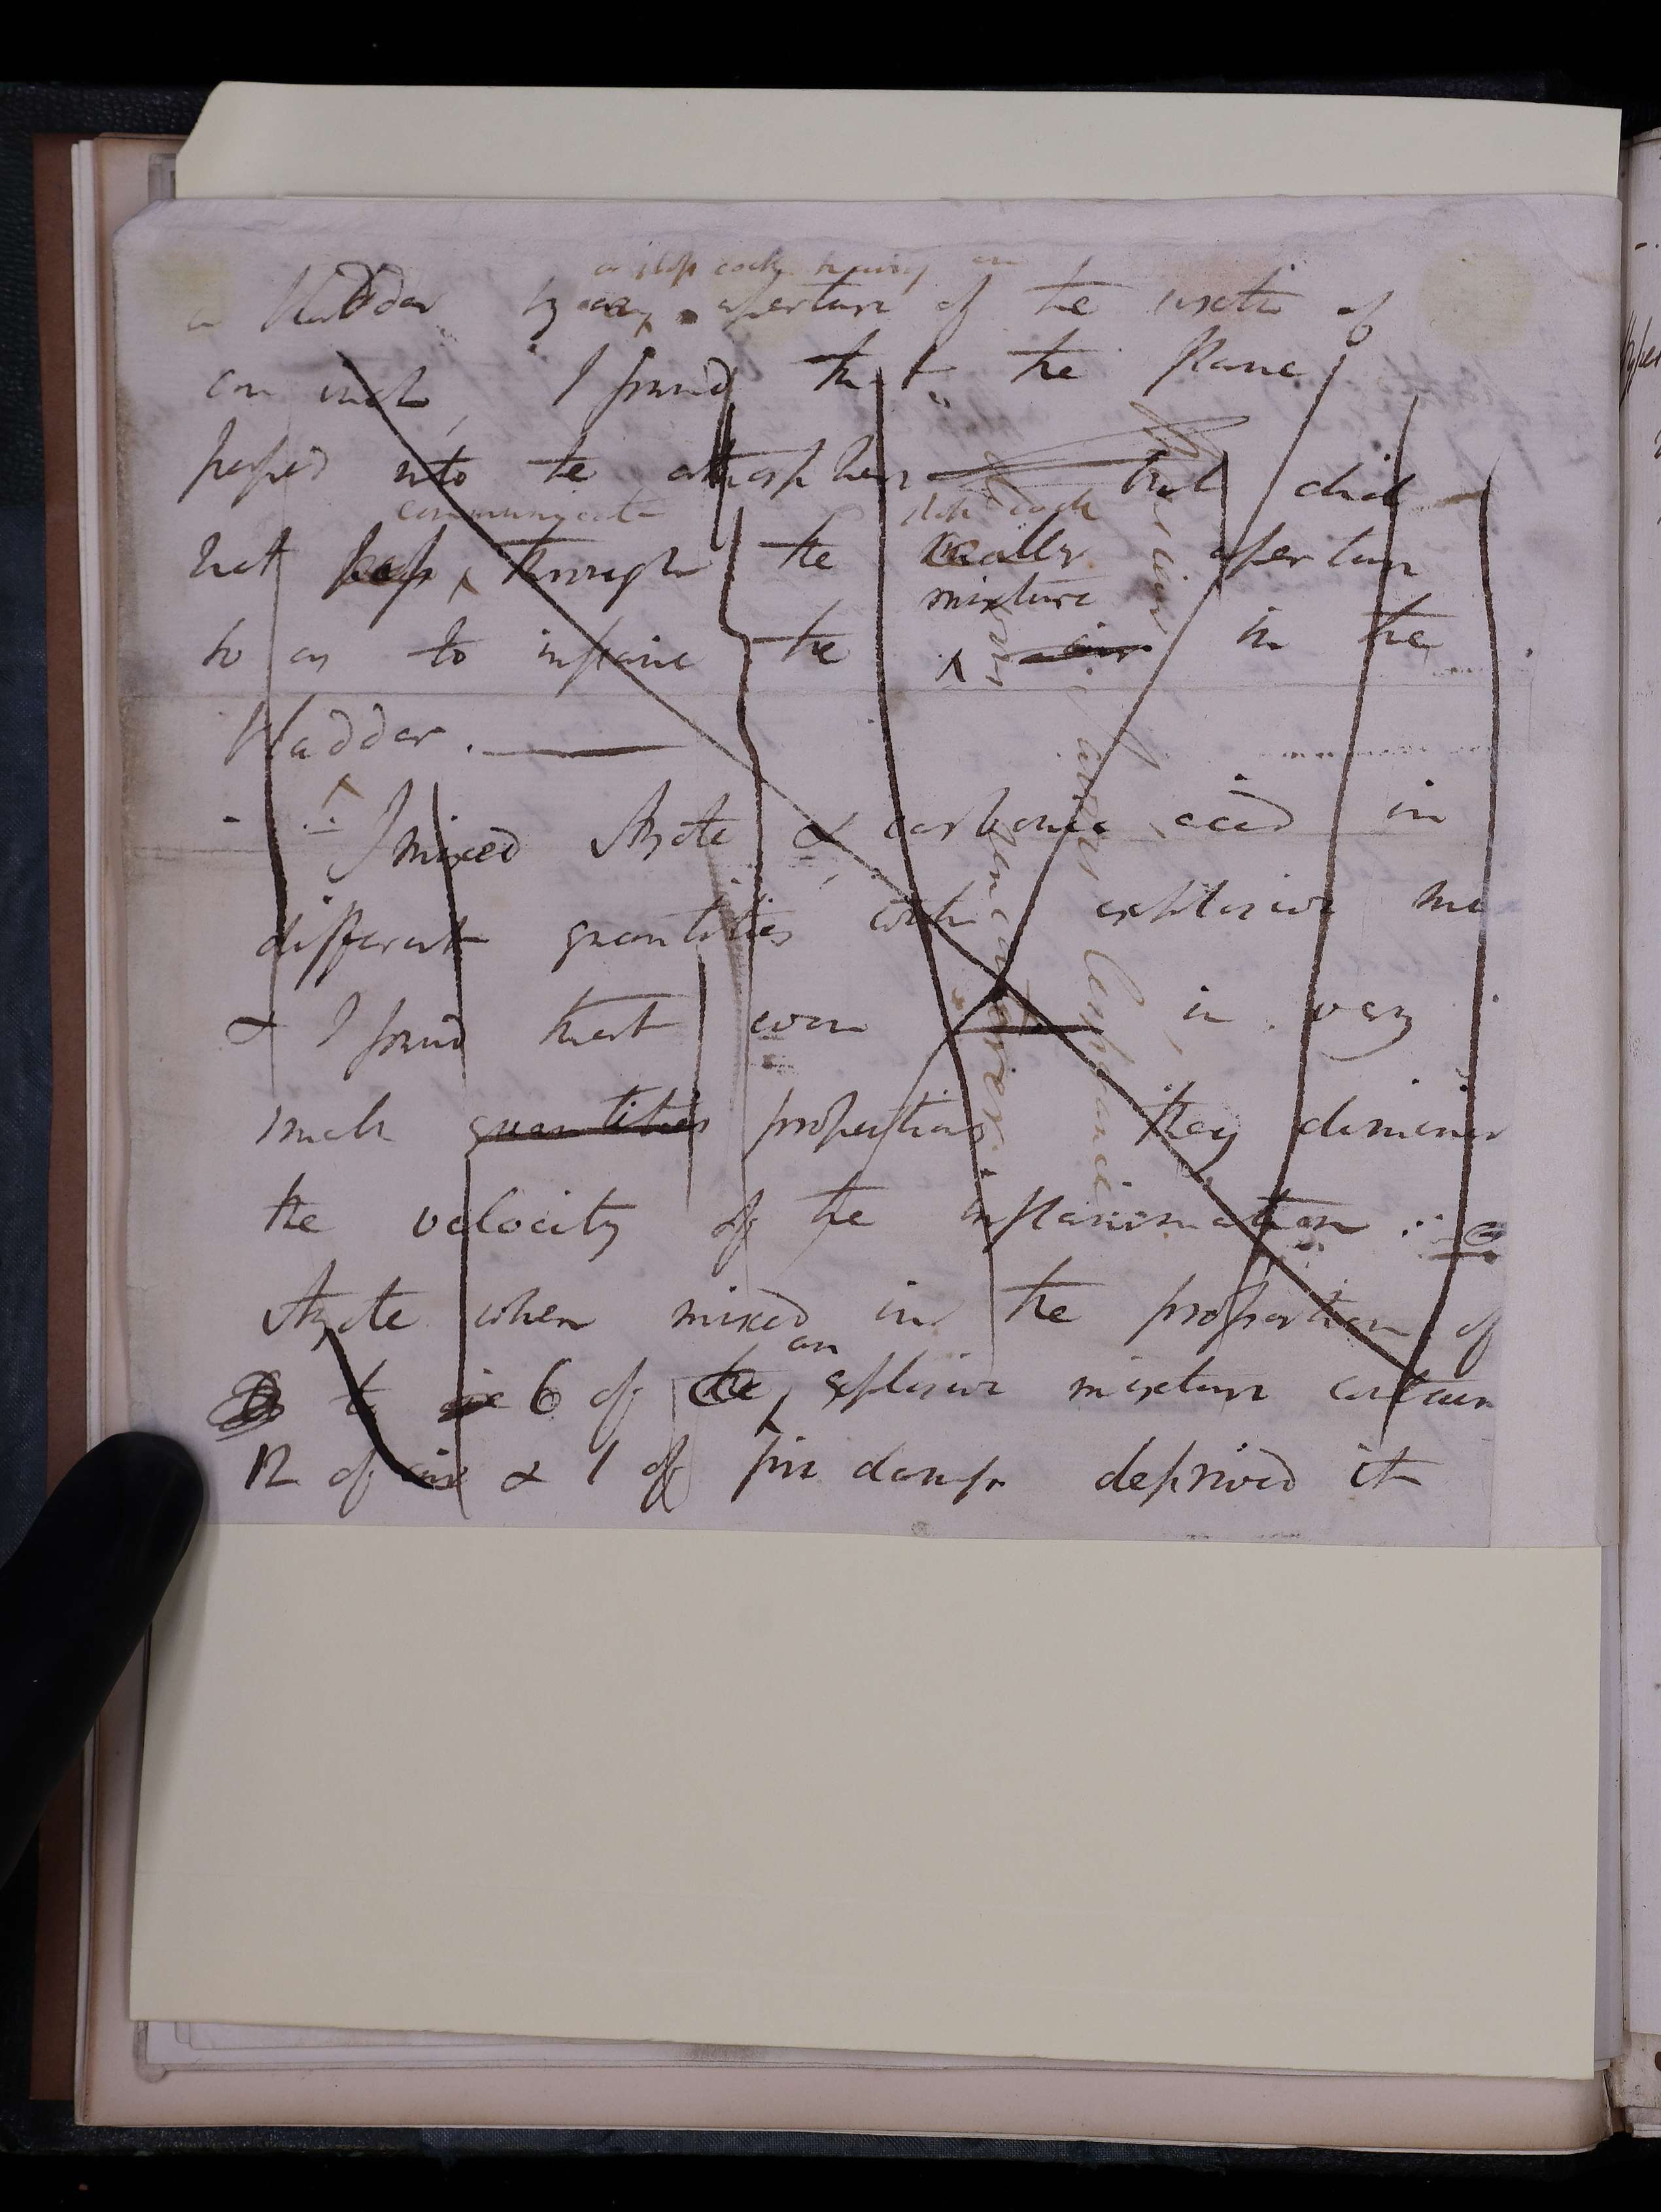 a stop cock having an
a bladder by an aperture of the width of
an inch, I found that the flame
passed into the atmosphere but did
communicate stop cock
not pass through the aperture
mixture
so as to inflame the air in the
bladder.
I mixed Azote & carbonic acid in
different quantities with explosive mi
& I found that even in very
small quantities proportions they diminis
the velocity of the inflammation
Azote when mixed in the proportion of
an
to 6 of the explosive mixture contain
12 of air & 1 of fire damp deprived it